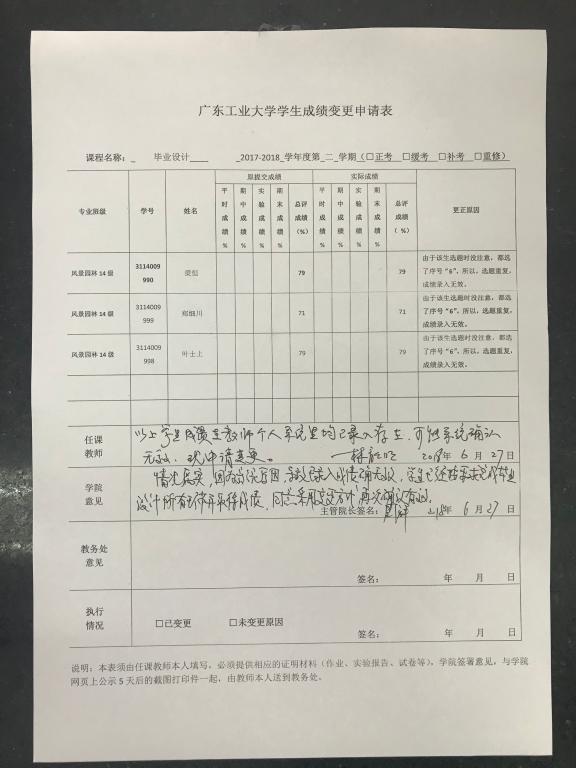 广东工业大学学生成绩变更申请表
课程名称：_ 毕业设计____ _2017-2018_学年度第_二_学期（□正考 □缓考 □补考 □重修）
专业班级 学号 姓名 原提交成绩 实际成绩 更正原因
平时成绩% 期中成绩% 实验成绩% 期末成绩% 总评成绩（%） 平时成绩% 期中成绩% 实验成绩% 期末成绩% 总评成绩（%）
风景园林 14 级 3114009990 梁恒 79 79 由于该生选题时没注意，都选了序号“6”。所以，选题重复，成绩录入无效。
风景园林 14 级 3114009999 郑细川 71 71 由于该生选题时没注意，都选了序号“6”。所以，选题重复，成绩录入无效。
风景园林 14 级 3114009998 叶士上 79 79 由于该生选题时没注意，都选了序号“6”。所以，选题重复，成绩录入无效。
任课教师
以上学生成绩在教师个人系统里均已录入存在，可能系统确认
无效，现申请变更。 2018年 6 月 27 日
学院意见
情况属实，因系统原因导致录入成绩确无效，学生已还按要求完成毕业
设计所有环节并取得成绩，同意
主管院长签名： 2018年 6 月 27 日
教务处意见
签名： 年 月 日
执行情况 □已变更 □未变更原因
签名： 年 月 日
说明：本表须由任课教师本人填写，必须提供相应的证明材料（作业、实验报告、试卷等），学院签署意见，与学院
网页上公示 5 天后的截图打印件一起，由教师本人送到教务处。